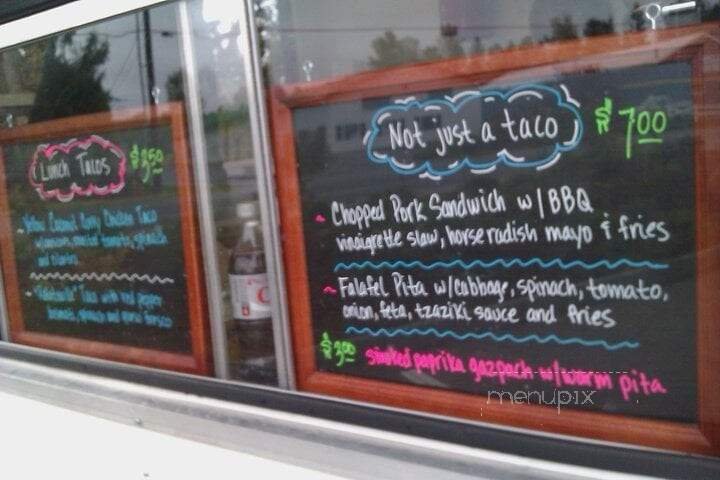 Lunch Tacos
$3.50
Yellow Coconut Curry Chicken Taco
w/ tomato, spinach
and cilantro
"Ratatouille" Taco with red pepper
spinach and queso fresco
Not just a taco
$7.00
~ Chopped Pork Sandwich w/ BBQ
vinaigrette slaw, horseradish mayo & fries
~ Falafel Pita w/cabbage, spinach, tomato,
onion, feta, tzaziki sauce and fries
$3.00 smoked paprika gazpach w/warm pita
menupix